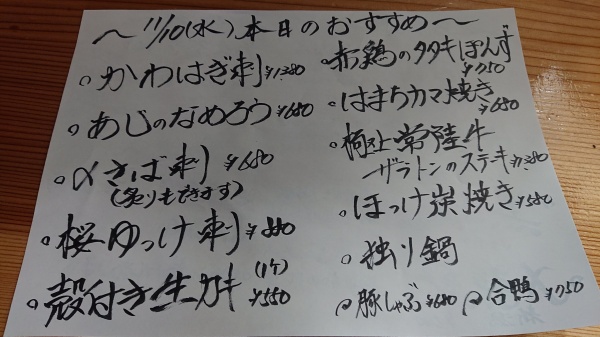 ～11/10(水)、本日のおすすめ～
○かわはぎ刺 ¥1280
○あじのなめろう ¥680
○〆さば刺 ¥680
(炙りもできます)
○桜ゆっけ刺
○殻付き生カキ (1ケ) ¥550
○赤鶏のタタキぽんず ¥750
○はまちカマ焼き ¥680
○極上常陸牛
ザブトンのステーキ ¥1280
○ほっけ炭焼き ¥580
○独り鍋
豚しゃぶ ¥680 合鴨 ¥750